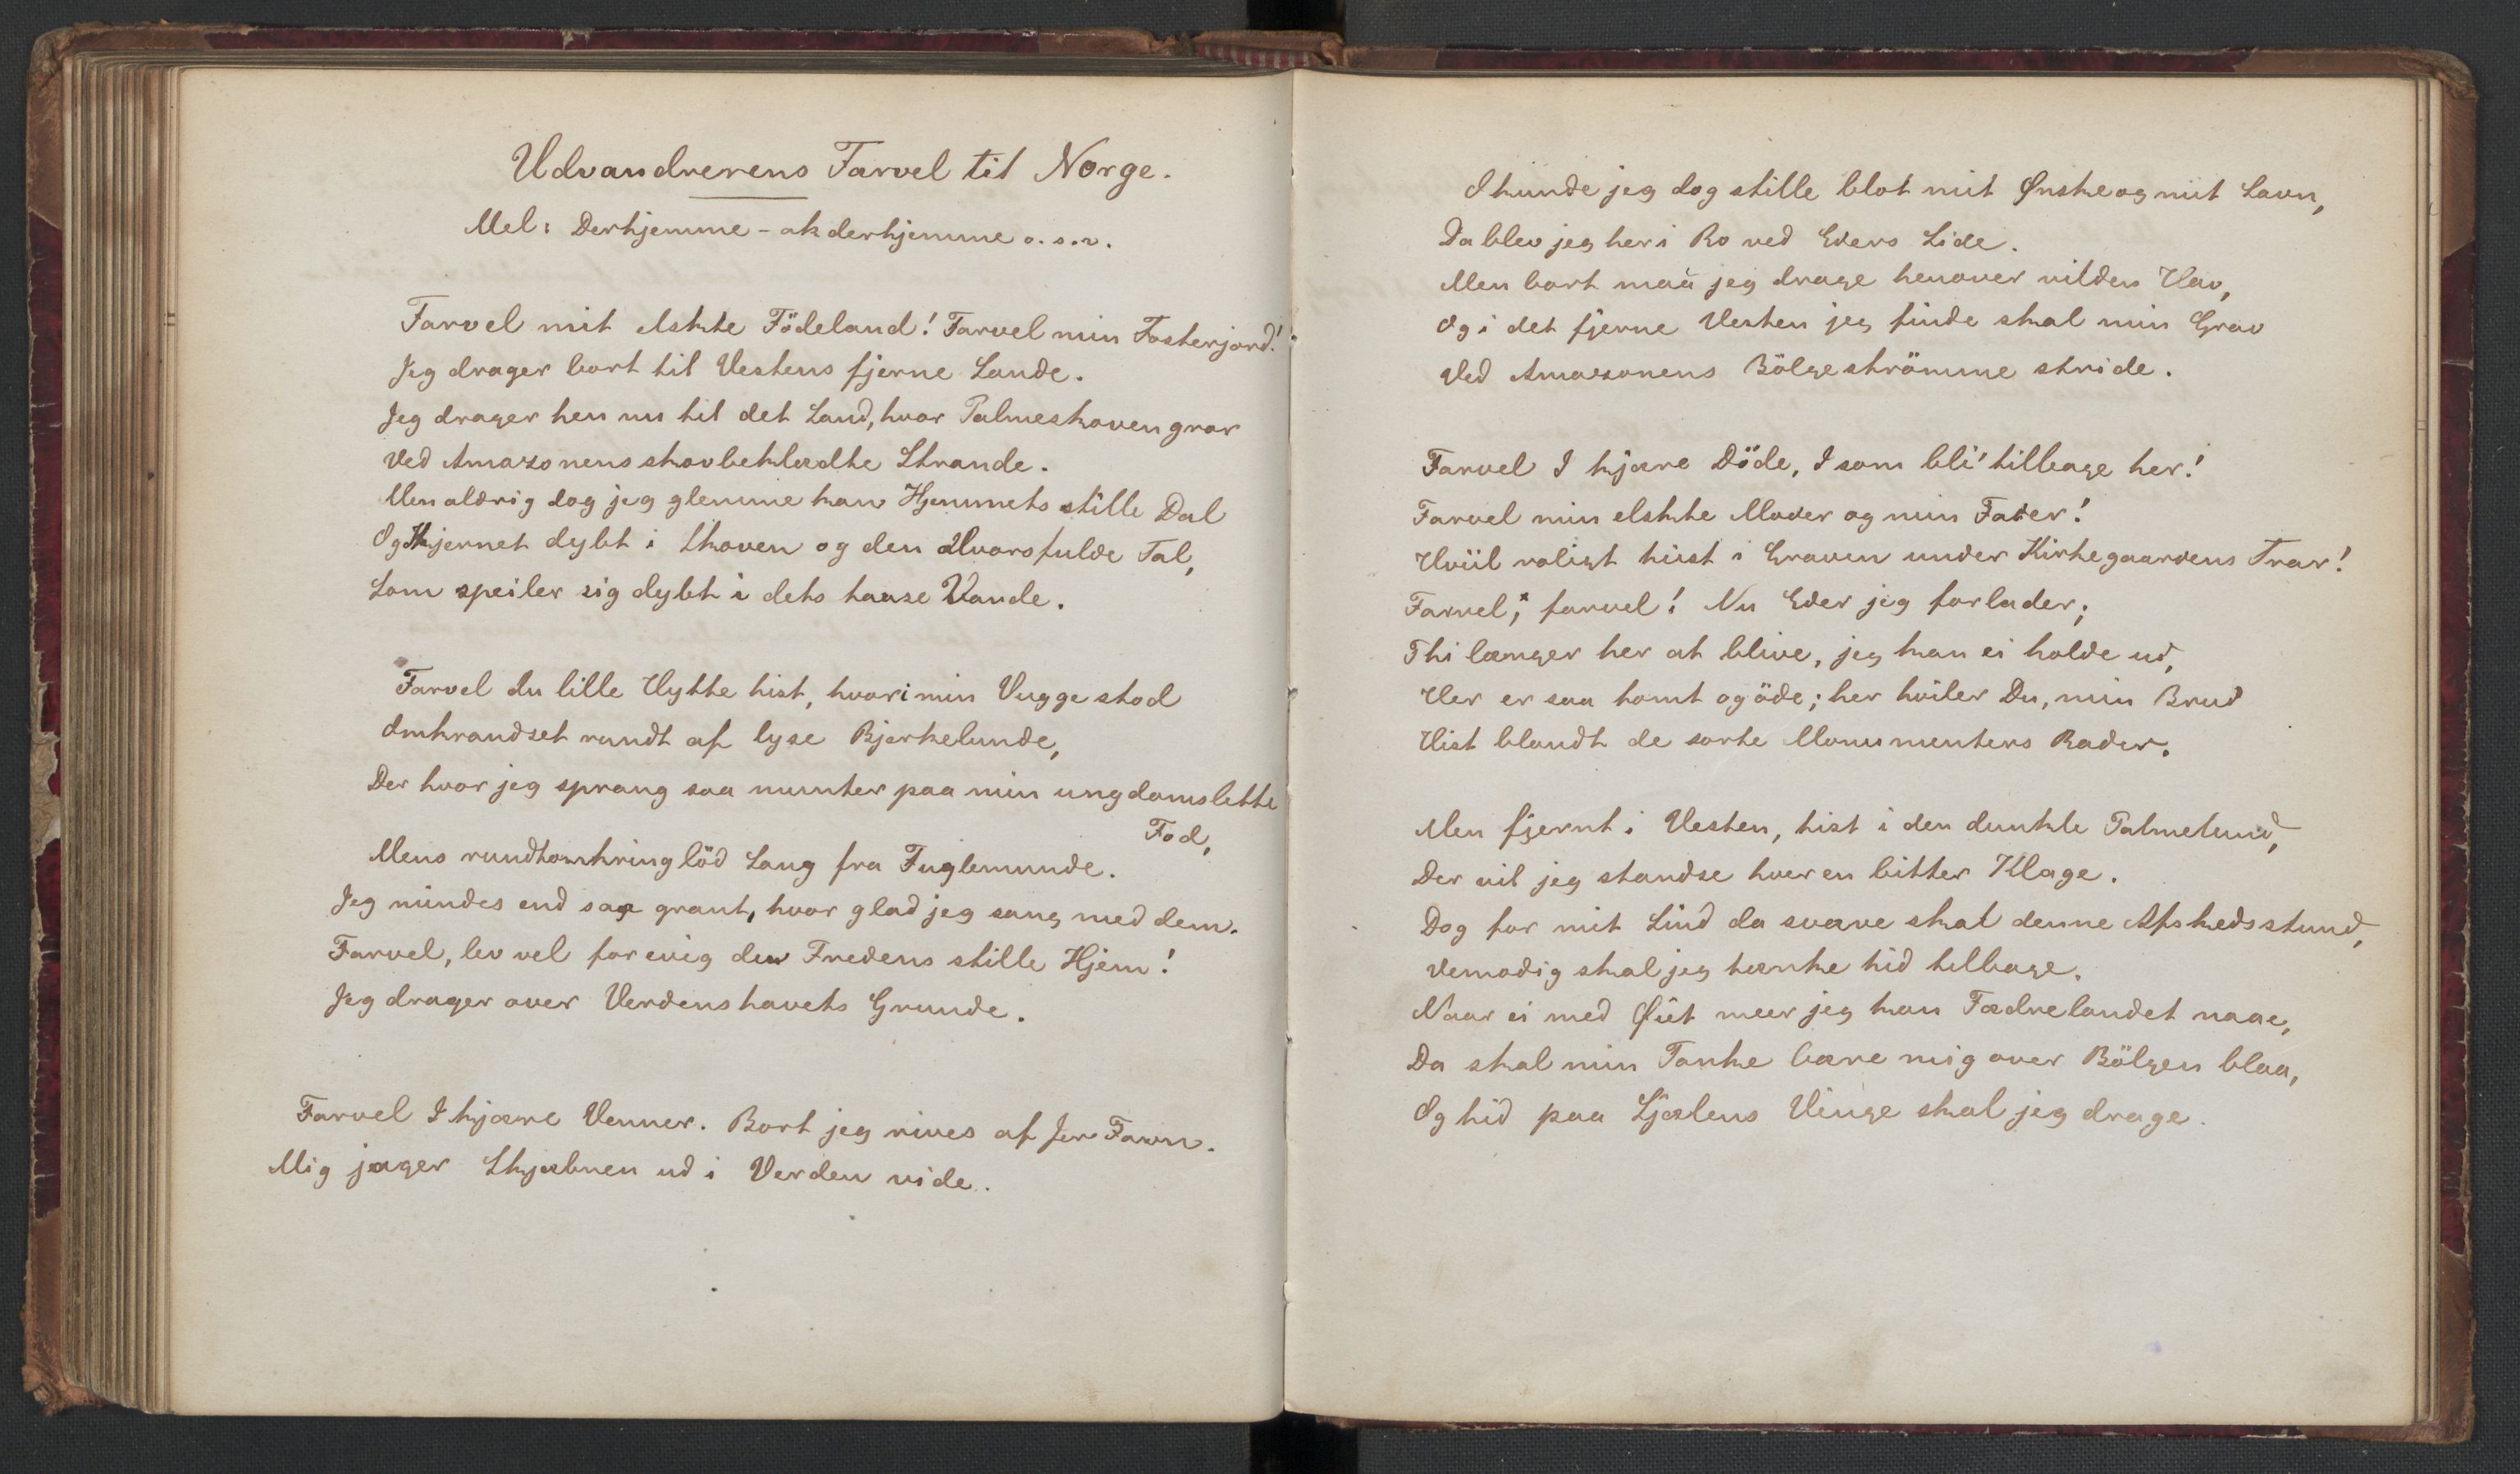 Udvandrerens Farvel til Norge.
Mel: Derhjemme - ak derhjemme o. s. v.
Farvel mit elskte Födeland! Farvel min Fosterjord!
Jeg drager bort til Vestens fjerne Lande.
Jeg drager hen nu til det Land, hvor Palmeskoven gror
Ved Amazonens skovbeklædte Strande.
Men aldrig dog jeg glemme kan Hjemmets stille Dal
Og Kjernet dybt i Skoven og den alvorsfulde Tal,
Som speiler sig dybt i dets haase Vande.
Farvel du lille Hytte hist, hvori min Vugge stod
Omkrandset rundt af lyse Bjerkelunde,
Der hvor jeg sprang saa munter paa min ungdomslette
Fod,
Mens rundtomkring löd Sang fra Fuglemunde.
Jeg mindes end saa grant, hvor glad jeg sang med dem.
Farvel, lev vel for evig du Fredens stille Hjem!
Jeg drager over Verdenshavets Grunde.
Farvel I kjære Venner. Bort jeg rives af Jer Favn.
Mig jager Skjæbnen ud i Verden vide.
O kunde jeg dog stille blot mit Ønske og mit Savn,
Da blev jeg her i Ro ved Eders Side.
Men bort maa jeg drage henover vilden Hav,
Og i det fjerne Vesten jeg finde skal min Grav
Ved Amazonens Bölgeströmme stride.
Farvel I kjære Döde, I som bli' tilbage her!
Farvel min elskte Moder og min Fader!
Hviil roligt hist i Graven under Kirkegaardens Trær!
Farvel, farvel! Nu Eder jeg forlader;
Thi længer her at blive, jeg kan ei holde ud,
Her er saa tomt og öde; her hviler Du, min Brud
Hist blandt de sorte Monumenters Rader.
Men fjernt i Vesten, hist i den dunkle Palmelund,
Der vil jeg standse hver en bitter Klage.
Dog for mit Sind da svæve skal denne Afskedsstund,
Vemodig skal jeg tænke hid tilbage.
Naar ei med Øiet meer jeg kan Fædrelandet naae,
Da skal min Tanke bære mig over Bölgen blaa,
Og hid paa Sjælens Vinge skal jeg drage.